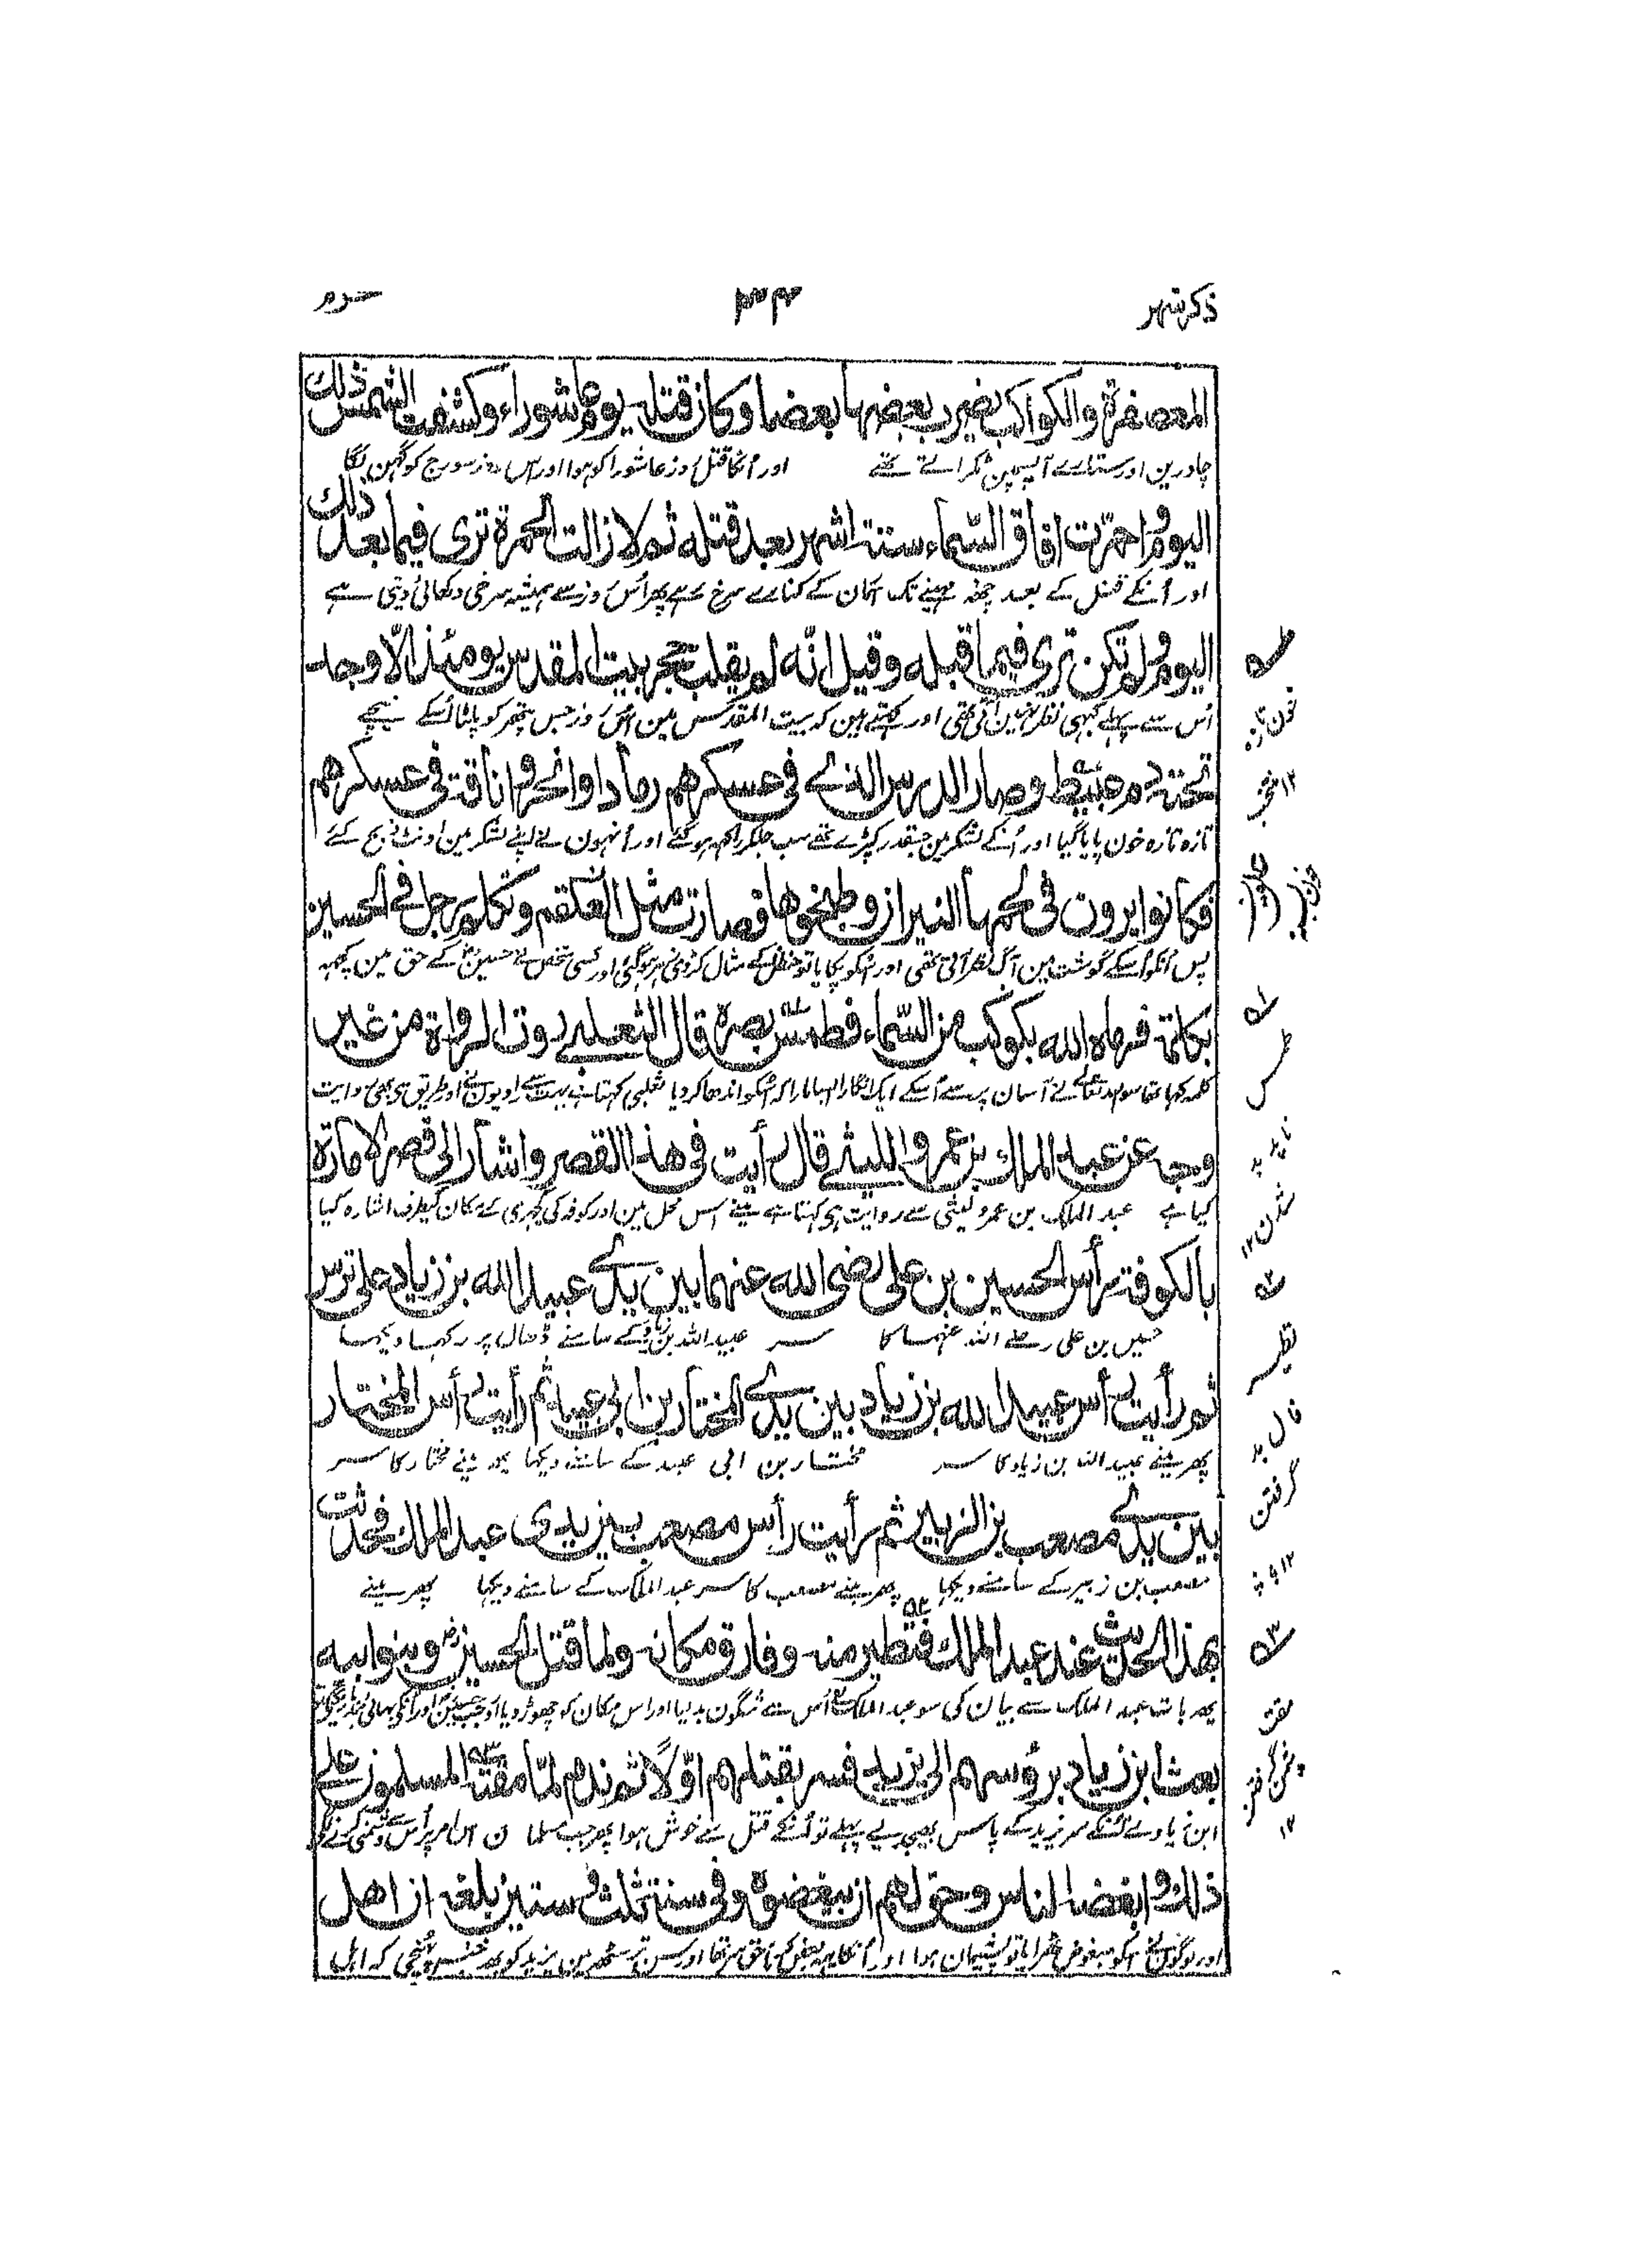 ذکر شہر
۳۴
محرم
المعصفرة والكواكب يضرب بعضها بعضا وكان قتله يوم عاشوراء وكسفت الشمس ذلك
چادرین اور ستارے آپسمین ٹکراتے تھے اور اُنکا قتل روز عاشورا کو ہوا اور اس روز سورج کو گہن لگا
اليوم واحمرّت افاق السّماء ستة اشهر بعد قتله ثم لا زالت الحمرة ترى فيما بعد ذلك
اور اُنکے قتل کے بعد چھہ مہینے تک آسمان کے کنارے سرخ رہے پھر اُس روز سے ہمیشہ سرخی دکھائی دیتی ہے
اليوم ولم تكن ترى فيما قبله وقيل انّه لم يقلب حجر بيت المقدس يومئذ الّا وجد
اُس سے پہلے کبہی نظر نہین آتی تھی اور کہتے ہین کہ بیت المقدس مین اُس روز جس پتھر کو پلٹا اُسکے نیچے
تحته دم عبيط وصار الورس الذي في عسكرهم رمادا وانحروا ناقة في عسكرهم
تازہ تازہ خون پایا گیا اور اُنکے لشکر مین جسقدر کپڑے تھے سب جلکر راکھہ ہو گئے اور اُنہون نے اپنے لشکر مین اونٹ ذبح کئے
فكانوا يرون في لحمها النيران وطبخوها فصارت مثل العلقم وتكلم رجل في الحسين
پس اُنکو اُسکے گوشت مین آگ نظر آتی تھی اور اُسکو پکایا تو حنظل کے مثال کڑوی زہر ہو گئی اور کسی شخص نے حسینؓ کے حق مین کچھہ
بكلمة فرماه الله بكوكب من السّماء فطمس بصره قال الثعلبي روت الرواة من غير
کلمہ کہا تھا سو اللہ تعالے نے آسمان پر سے اُسکے ایک انگارا ایسا مارا کہ اُسکو اندھا کر دیا ثعلبی کہتا ہے بہت سے راویون نے اور طریق سے بھی روایت
وجه عن عبد الملك بن عمرو الليثي قال رأيت في هذا القصر واشار الى قصر الامارة
کیا ہے عبد الملک بن عمرو لیثی سے روایت ہے کہتا ہے مینے اس محل مین اور کوفہ کی کچہری کے مکان کیطرف اشارہ کیا
بالكوفة رأس الحسين بن علي رضي الله عنهما بين يدي عبيد الله بن زياد على ترس
حسین بن علی رضے اللہ عنہما کا سر عبید اللہ بن زیاد کے سامنے ڈھال پر رکھا دیکہا
ثم رأيت رأس عبيد الله بن زياد بين يدي المختار بن ابي عبيد ثم رأيت رأس المختار
پھر مینے عبید اللہ بن زیاد کا سر مختار بن ابی عبید کے سامنے دیکہا پھر مینے مختار کا سر
بين يدي مصعب بن الزبير ثم رأيت رأس مصعب بين يدي عبد الملك فحدثت
مصعب بن زبیر کے سامنے دیکہا پھر مینے مصعب کا سر عبد الملک کے سامنے دیکہا پھر مینے
بهذا الحديث عند عبد الملك فتطير منه وفارق مكانه ولما قتل الحسين رض وبنو ابيه
یہہ بات عبد الملک سے بیان کی سو عبد الملک نے اُس سے شگون بد لیا اور اس مکان کو چھوڑ دیا اور جب حسین اور اُنکے بھائی
بعث ابن زياد برؤسهم الى يزيد فسر بقتلهم اوّلا ثم ندم لمّا مقته المسلمون على
ابن زیاد نے اُنکے سر یزید کے پاس بھیجے پہلے تو اُنکے قتل سے خوش ہوا پھر جب مسلمان اس امر پر اُس سے دشمنی کرنے لگے
ذلك وابغضه الناس وحق لهم ان يبغضوه وفي سنة ثلث وستين بلغه ان اهل
اور لوگون نے اُسکو مبغوض ٹھرایا تو پشیمان ہوا اور اُنکا یہہ بغض حق تھا اور سن ترسٹھہ مین یزید کو یہہ خبر پہنچی کہ اہل
خون تازہ
۱۲ منجر
طمس
ناپدید
شدن ۱۲
تطیر
فال بد
گرفتن
۱۲
مقت
دشمن گرفتن
۱۲